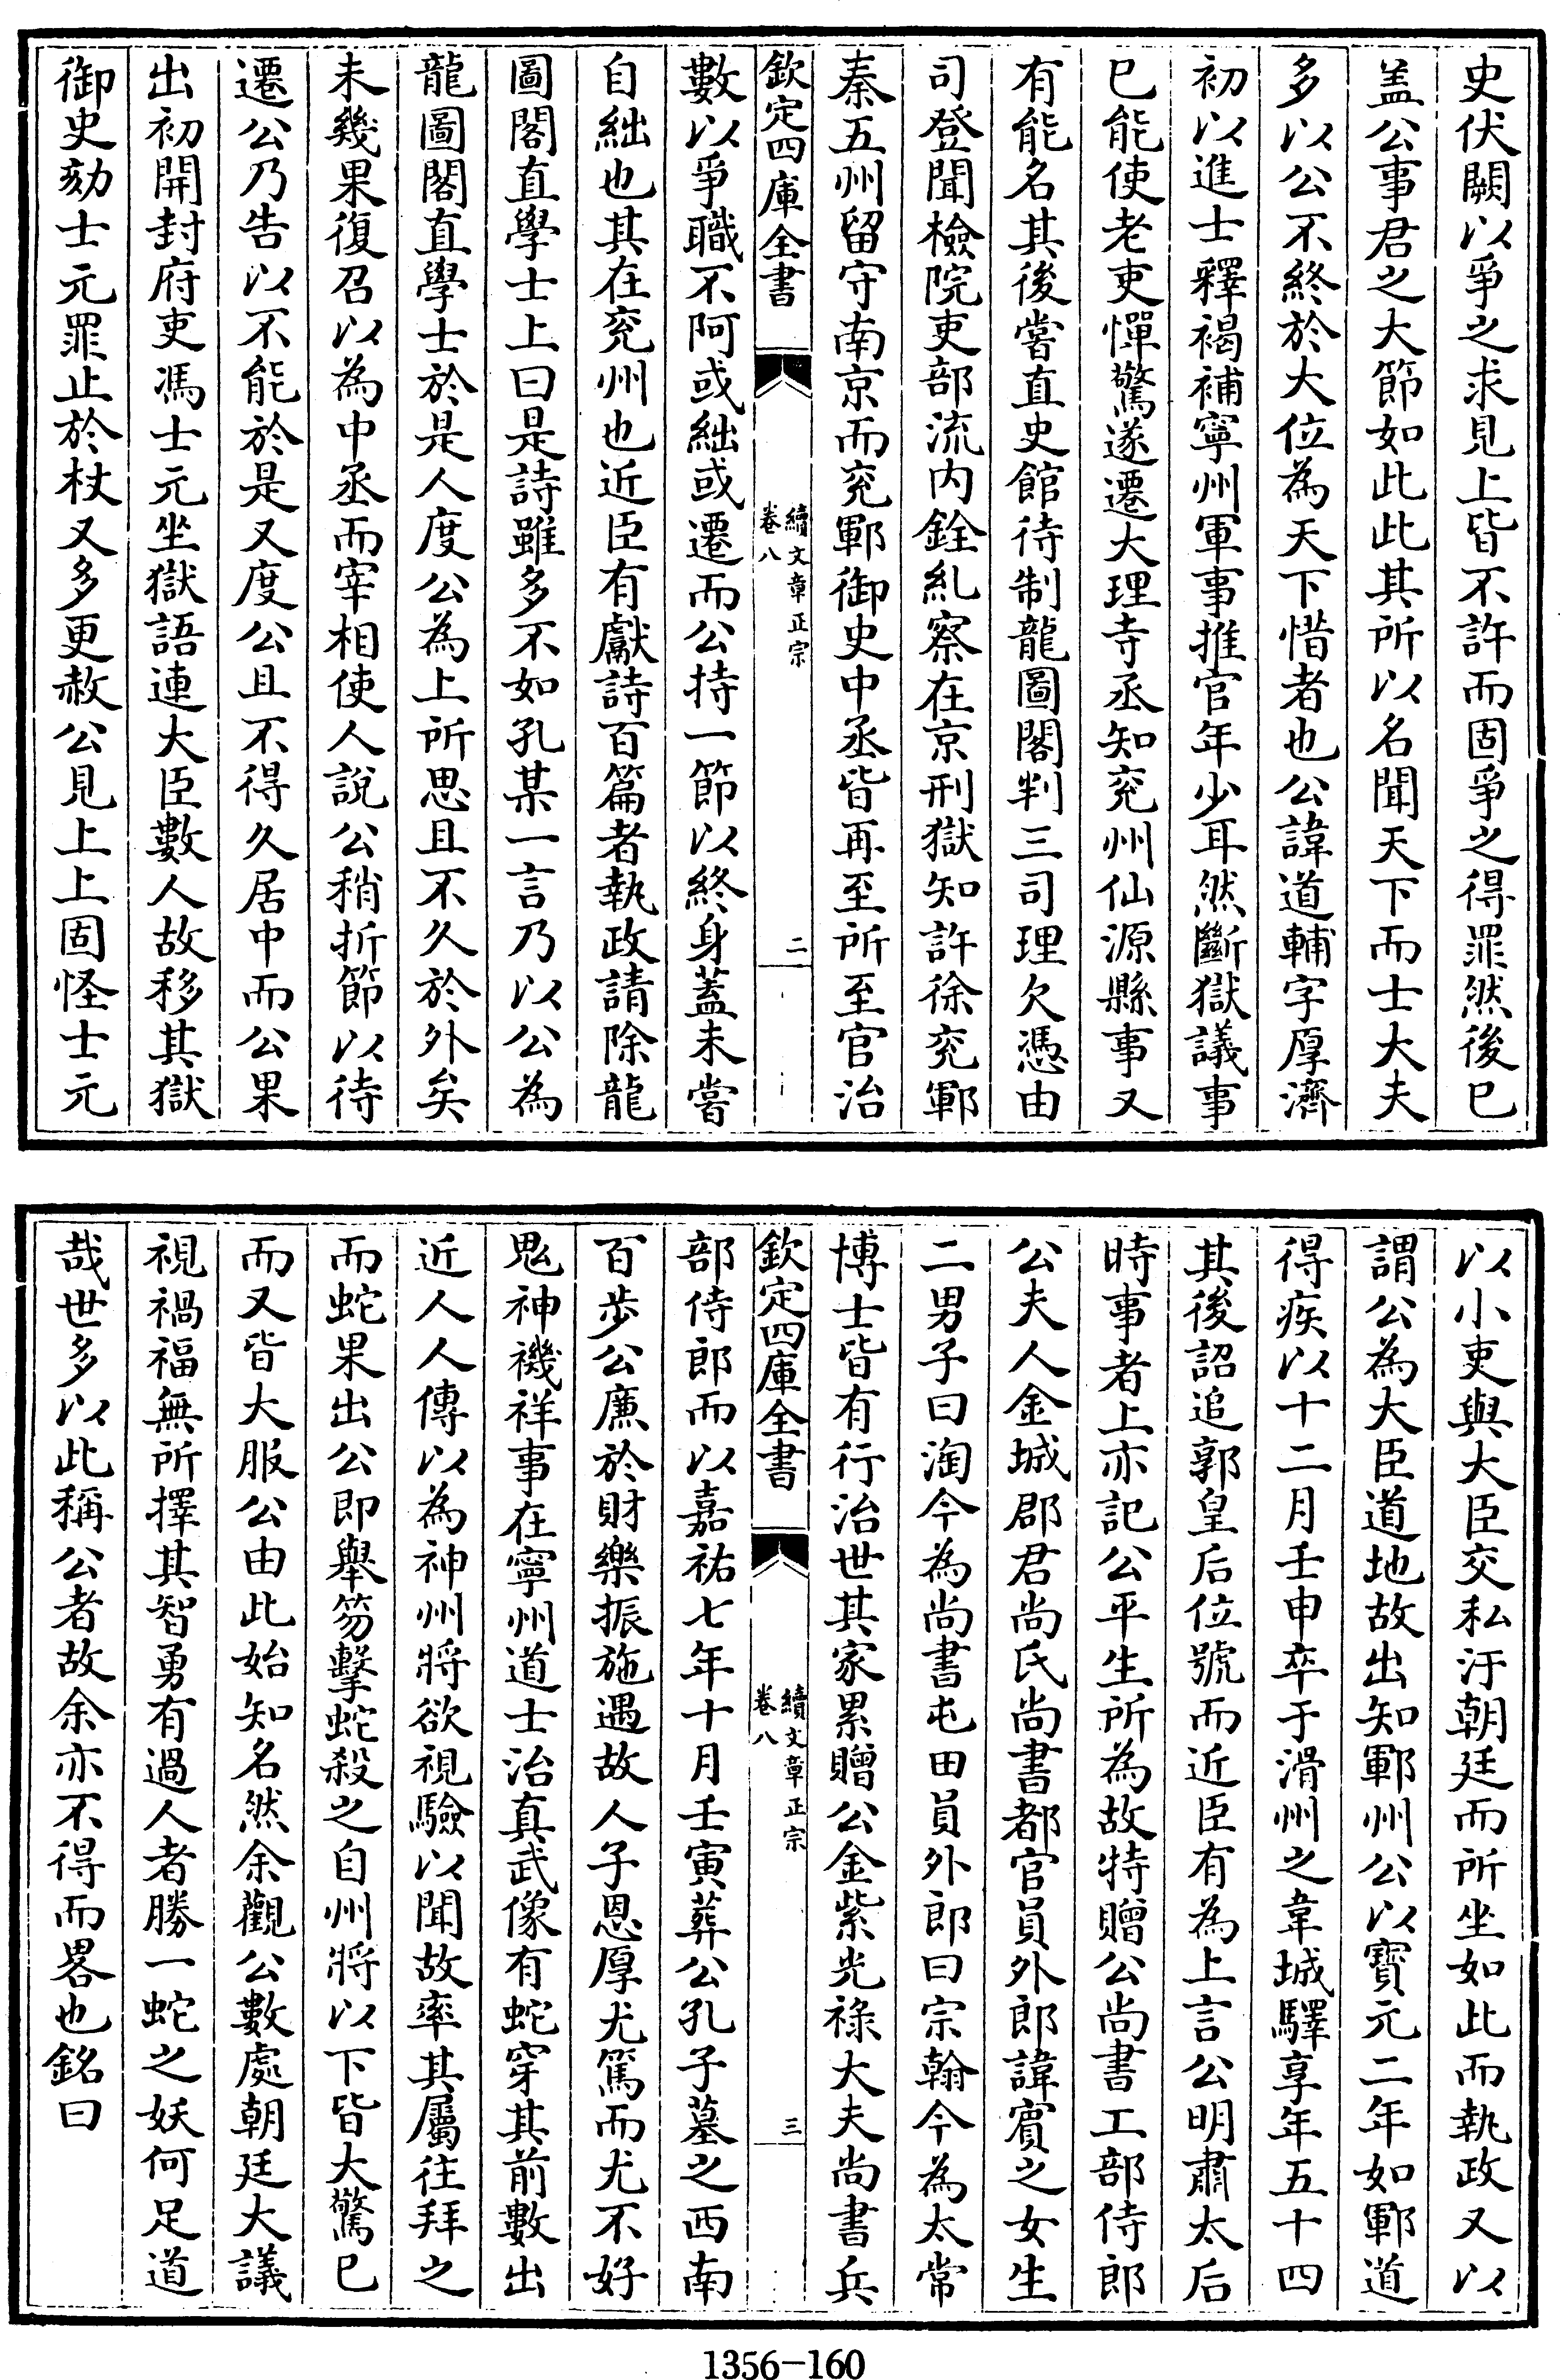 史伏闕以爭之求見上皆不許而固爭之得罪然後已
盖公事君之大節如此此其所以名聞天下而士大夫
多以公不終於大位為天下惜者也公諱道輔字厚濟
初以進士釋褐補寧州軍事推官年少耳然斷獄議事
已能使老吏憚驚遂遷大理寺丞知兖州仙源縣事又
有能名其後嘗直史館待制龍圖閣判三司理欠憑由
司登聞檢院吏部流内銓糺察在京刑獄知許徐兖鄆
秦五州留守南京而兖鄆御史中丞皆再至所至官治
欽定四庫全書
續文章正宗
卷八
二
數以爭職不阿或絀或遷而公持一節以終身蓋未嘗
自絀也其在兖州也近臣有獻詩百篇者執政請除龍
圖閣直學士上曰是詩雖多不如孔某一言乃以公為
龍圖閣直學士於是人度公為上所思且不久於外矣
未幾果復召以為中丞而宰相使人說公稍折節以待
遷公乃告以不能於是又度公且不得久居中而公果
出初開封府吏馮士元坐獄語連大臣數人故移其獄
御史劾士元罪止於杖又多更赦公見上上固怪士元
以小吏與大臣交私汙朝廷而所坐如此而執政又以
謂公為大臣道地故出知鄆州公以寳元二年如鄆道
得疾以十二月壬申卒于滑州之韋城驛享年五十四
其後詔追郭皇后位號而近臣有為上言公明肅太后
時事者上亦記公平生所為故特贈公尚書工部侍郎
公夫人金城郡君尚氏尚書都官員外郎諱賓之女生
二男子曰淘今為尚書屯田員外郎曰宗翰今為太常
博士皆有行治世其家累贈公金紫光祿大夫尚書兵
欽定四庫全書
續文章正宗
卷八
三
部侍郎而以嘉祐七年十月壬寅葬公孔子墓之西南
百步公廉於財樂振施遇故人子恩厚尤篤而尤不好
鬼神禨祥事在寧州道士治真武像有蛇穿其前數出
近人人傳以為神州將欲視驗以聞故率其屬往拜之
而蛇果出公即舉笏擊蛇殺之自州將以下皆大驚已
而又皆大服公由此始知名然余觀公數處朝廷大議
視禍福無所擇其智勇有過人者勝一蛇之妖何足道
哉世多以此稱公者故余亦不得而畧也銘曰
1356-160